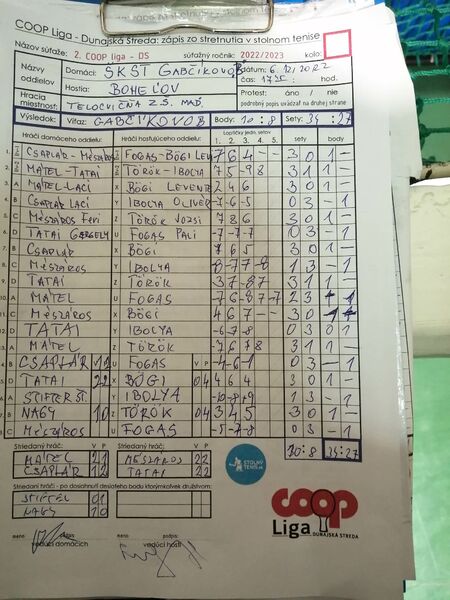 COOP Liga - Dunajská Streda: zápis zo stretnutia v stolnom tenise
Názov súťaže: 2. COOP liga - DS súťažný ročník: 2022/2023 kolo:
Názvy oddielov Domáci: ŠKST GABČÍKOVO B dátum: 6.12.2022
Hostia: BOHEĽOV čas: hod.
Hracia miestnosť: TELOCVIČŇA Z.Š. MAĎ. Protest: áno / nie
podrobný popis uvádzať na druhej strane
Výsledok: Víťaz: GABČÍKOVO B Body: 10:8 Sety: 35:27
Hráči domáceho oddielu Hráči hosťujúceho oddielu Loptičky jedn. setov sety body
1. 2. 3. 4. 5.
CSAPLÁR-MÉSZÁROS FOGAS-BÖGI LEV 7 6 4 - - 3 0 1 -
MATEL-TATAI TÖRÖK-IBOLYA 7 5 -9 8 3 1 1 -
A MATEL LACI X BÖGI LEVENTE 2 4 6 3 0 1 -
B CSAPLÁR LACI Y IBOLYA OLIVÉR -7 -6 -5 0 3 - 1
C MÉSZÁROS FERI Z TÖRÖK JOZSI 7 8 6 3 0 1 -
D TATAI GERGELY U FOGAS PALI -7 -7 -7 0 3 - 1
B CSAPLÁR X BÖGI 7 6 5 3 0 1 -
C MÉSZÁROS Y IBOLYA -8 -7 7 -8 1 3 - 1
D TATAI Z TÖRÖK 3 7 -8 7 3 1 1 -
A MATEL U FOGAS -7 6 -8 7 -7 2 3 - 1
C MÉSZÁROS X BÖGI 4 6 7 3 0 1 -
D TATAI Y IBOLYA -6 -7 -8 0 3 0 1
A MATEL Z TÖRÖK 7 6 -7 8 3 1 1 -
B CSAPLÁR U FOGAS V P -4 -6 -1 0 3 - 1
D TATAI 2 2 X BÖGI 0 4 4 6 4 3 0 1 -
A STIFTER ŠT. Y IBOLYA -10 -8 +9 1 3 - 1
B NAGY 1 0 Z TÖRÖK 0 4 3 4 5 3 0 1 -
C MÉSZÁROS U FOGAS -5 -7 -8 0 3 - 1
Striedaný hráč: V P Striedaný hráč: V P sety body
MATEL 2 1 MÉSZÁROS 2 2 10:8 35:27
CSAPLÁR 1 2 TATAI 2 2
Striedaní hráči - po dosiahnutí desiateho bodu ktorýmkoľvek družstvom:
STIFTEL 0 1
NAGY 1 0
STOLNÝ TENIS.sk
meno podpis meno podpis
vedúci domácich vedúci hostí
coop
Liga DUNAJSKÁ STREDA